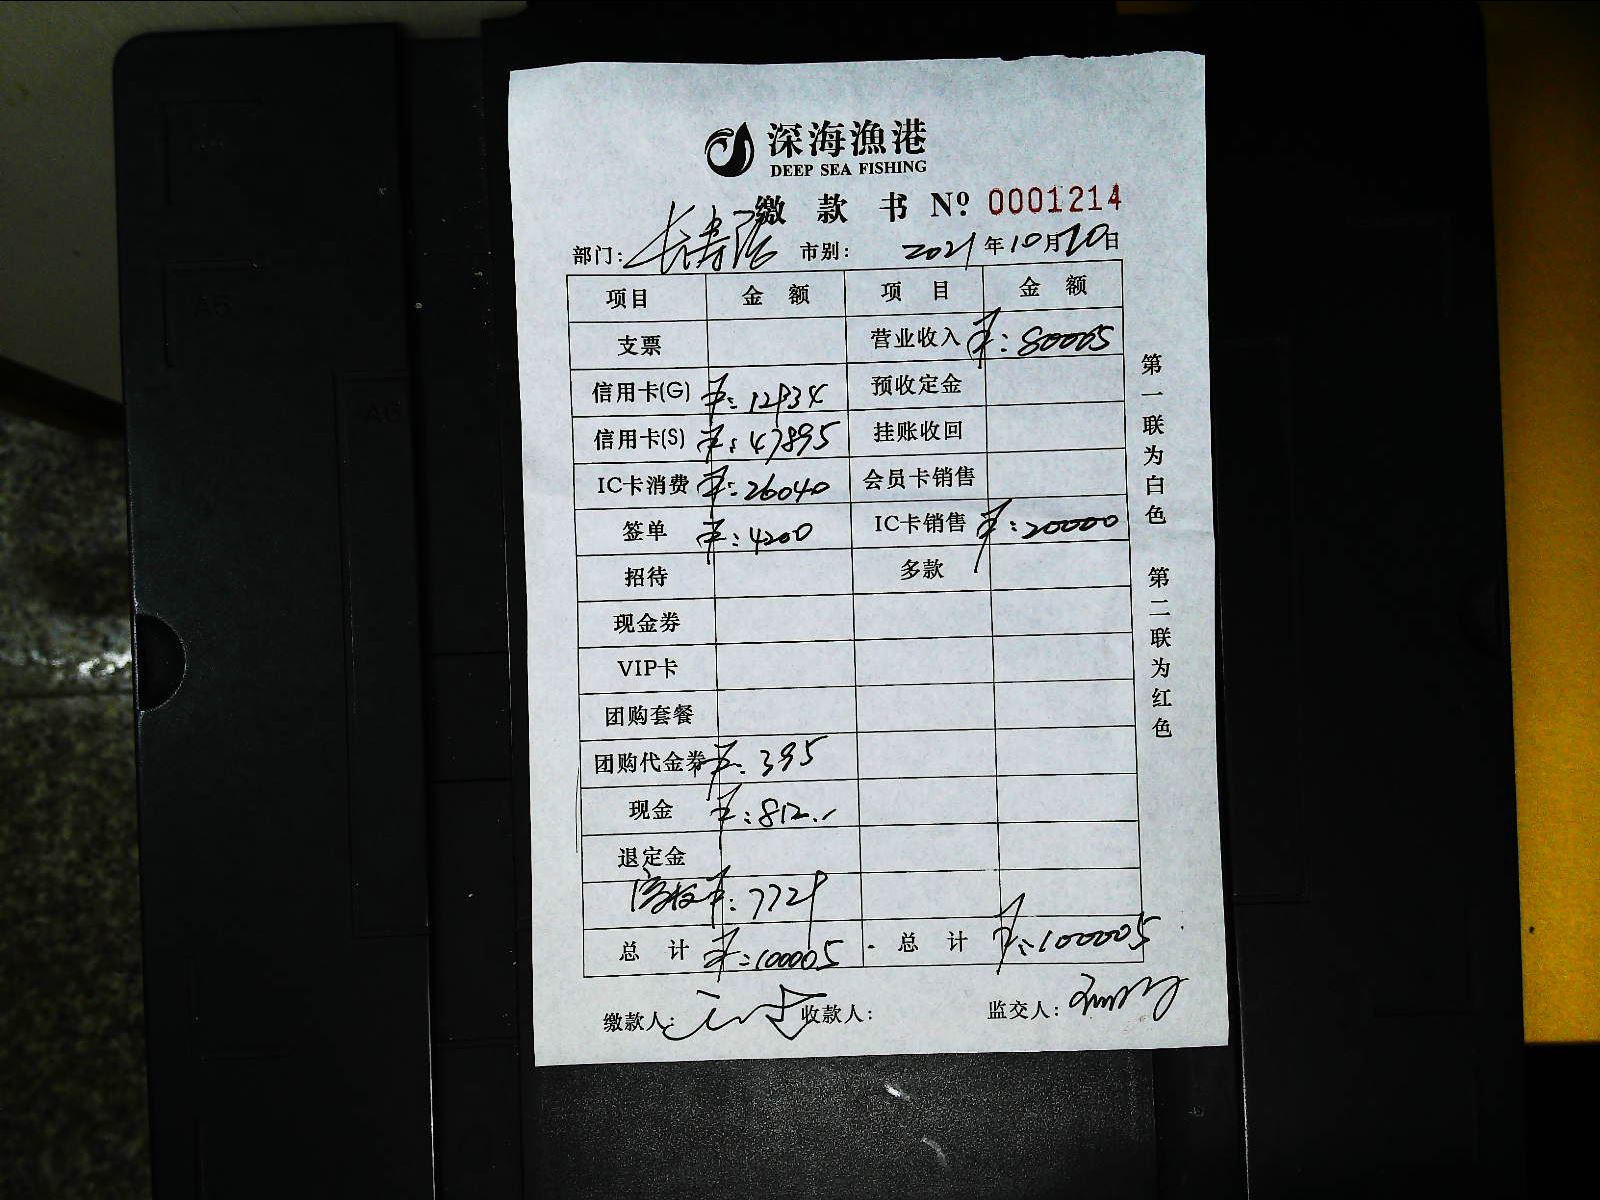 深海漁港
DEEP SEA FISHING
缴款书 Nº 0001214
部门：长寿店 市别： 2021年10月20日
项目 金额 项目 金额
支票 营业收入 ¥：80005
信用卡(G) ¥：12934 预收定金
信用卡(S) ¥：47895 挂账收回
IC卡消费 ¥：26040 会员卡销售
签单 ¥：4200 IC卡销售 ¥：20000
招待 多款
现金券
VIP卡
团购套餐
团购代金券 ¥：395
现金 ¥：812.
退定金
¥：7729
总计 ¥：100005 总计 ¥：100005
缴款人： 收款人： 监交人：
第一联为白色 第二联为红色